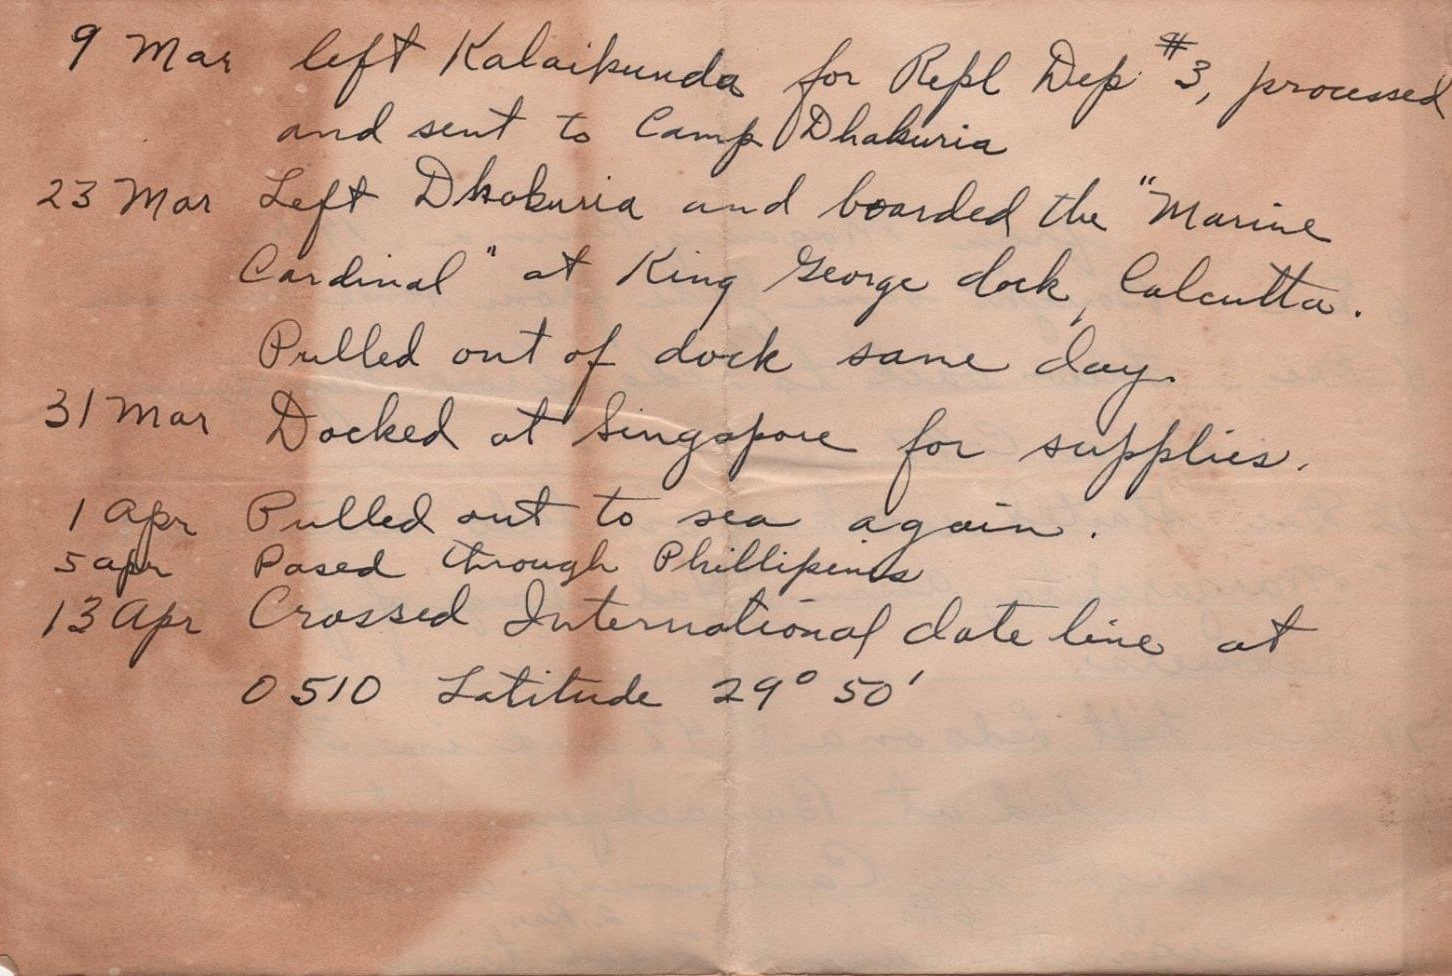 9 Mar left Kalaikunda for Repl Dep #3, processed
and sent to Camp Dhakuria
23 Mar Left Dhakuria and boarded the "Marine
Cardinal" at King George dock, Calcutta.
Pulled out of dock same day.
31 Mar Docked at Singapore for supplies.
1 Apr Pulled out to sea again.
5 apr Pased through Phillipines
13 Apr Crossed International date line at
0510 Latitude 29° 50'